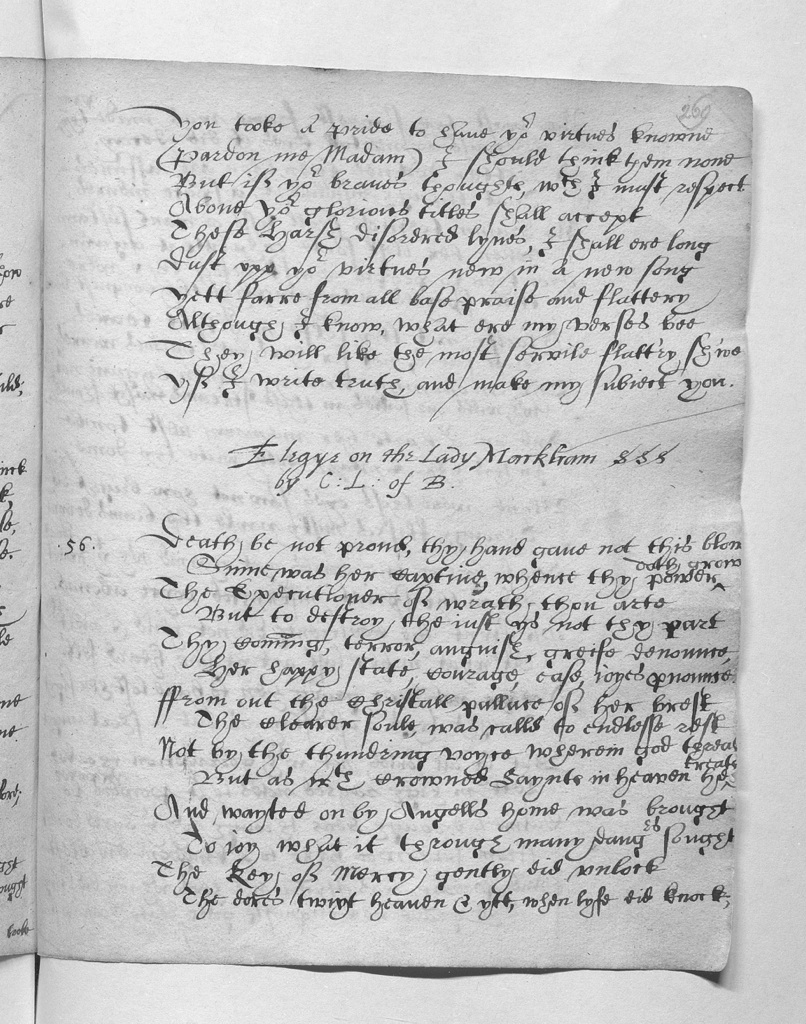 269
You tooke a pride to have yor virtues knowne
(pardon me Madam) I should think them none
But if yor braves thoughts, wch I must respect
Above yor glorious titles shall accept
These harsh disordred lynes, I shall ere long
dust vpp yor virtues new in a new song
yett farre from all base praise and flattery
Although I know, what ere my verses bee
They will like the most servile flattry shwe
yff I write truth, and make my subiect you.
Elegye on the Lady Marckham
by C: L: of B.
56. Death be not proud, thy hand gave not this blow
Sinne was her captive, whence thy power doth grow
The Executioner of wrath thou arte
But to destroy the iust ys not thy part
Thy comming, terror, anguish, greife denounce,
Her happy state, courage, ease, ioyes pnounce.
ffrom out the Christall pallace of her brest
The clearer soule was calld to endlesse rest
Not by the thundring voyce wherein god threats
But as wth crowned Saynts in heaven he treats
And wayted on by Angells home was brought
To ioy what it through many dangrs sought
The Key of Mercy gently did vnlock
The dores twixt heaven & ytt, when lyfe did knock;